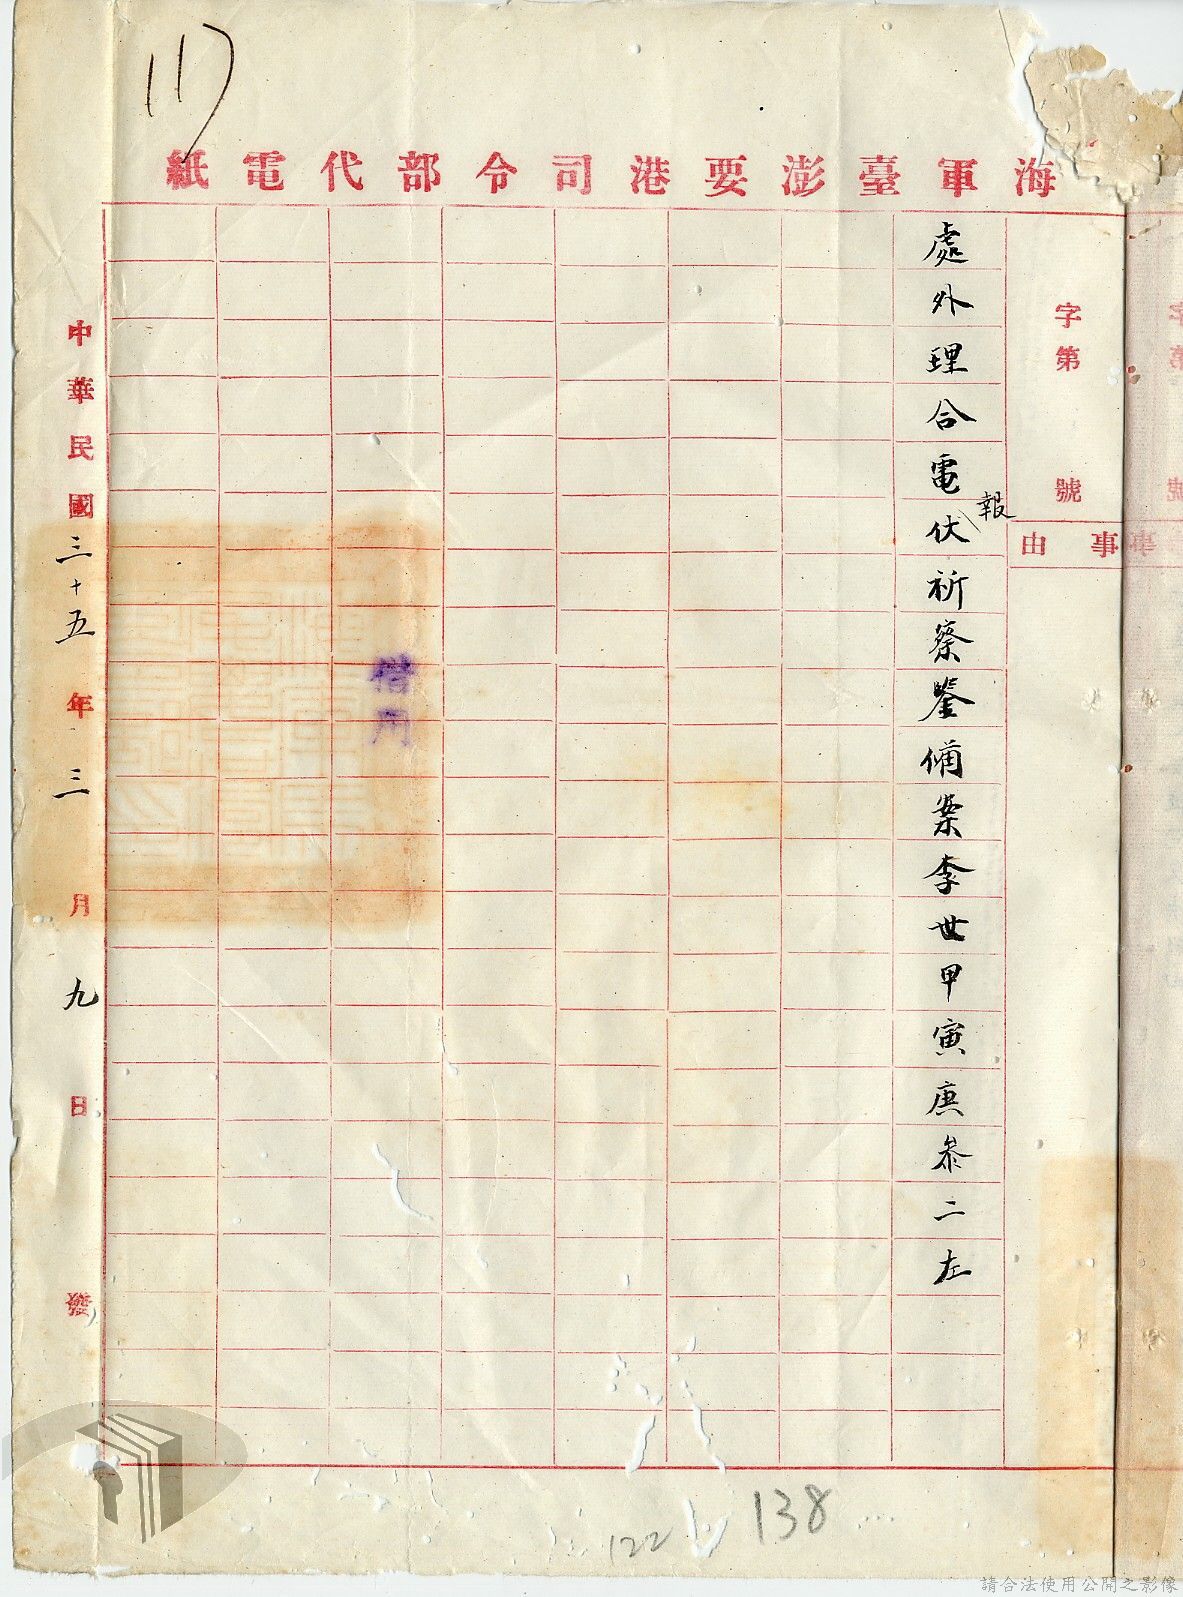 (11)
海軍臺澎要港司令部代電紙
字第 號
事由
處外理合電報伏祈察鑒備案李世甲寅庚叅二左
借用
中華民國三十五年三月九日發
138
122
請合法使用公開之影像